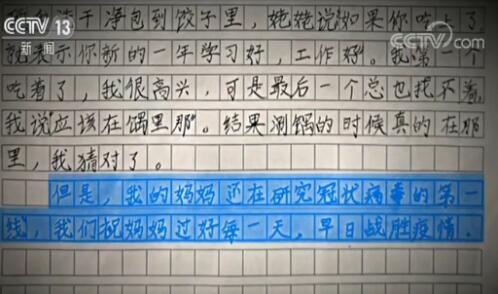 CCTV 13
新闻
CCTV.com
净包到饺子里，姥姥说"如果你吃
就表示你新的一年学习好，工作好"。我第一个
吃着了，我很高兴，可是最后一个总也找不着，
我说"应该在锅里那"。结果涮锅的时候真的在那
里，我猜对了。
但是，我的妈妈还在研究冠状病毒的第一
线，我们祝妈妈过好每一天，早日战胜疫情.